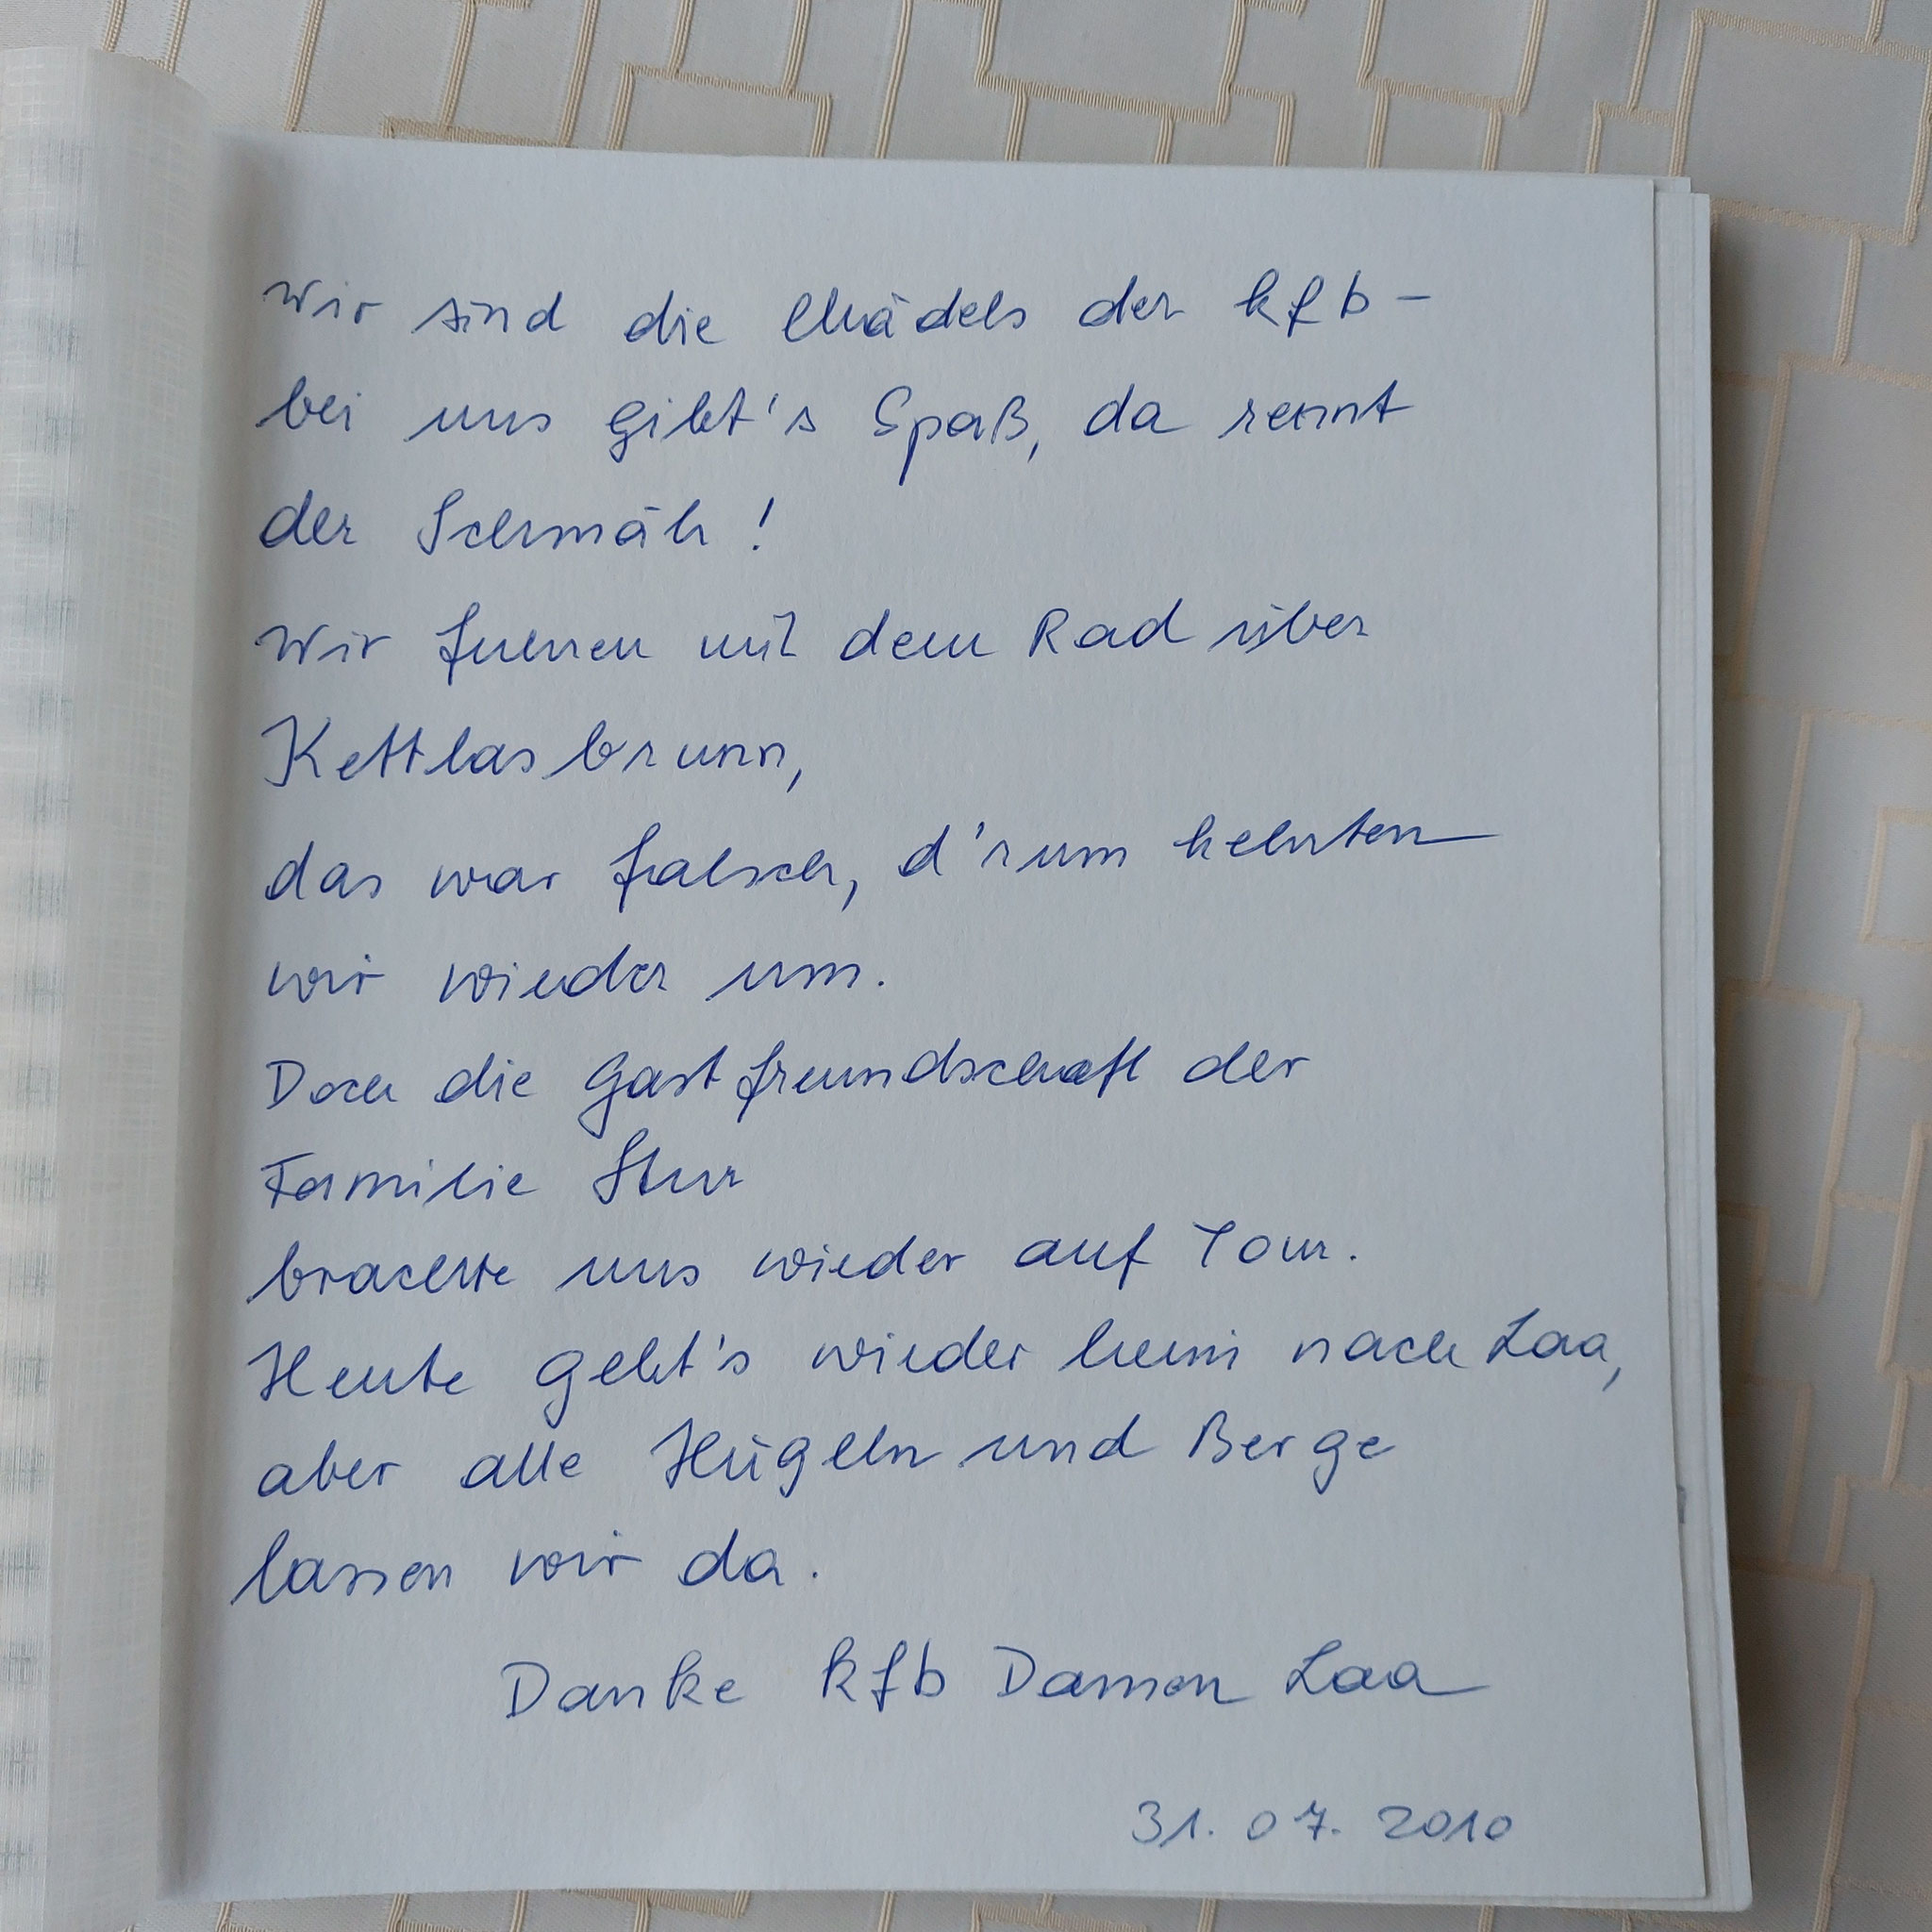 Wir sind die Mädels der kfb -
bei uns gibt's Spaß, da rennt
der Schmäh!
Wir fuhren mit dem Rad über
Kettlasbrunn,
das war falsch, d'rum kehrten
wir wieder um.
Doch die Gastfreundschaft der
Familie Stur
brachte uns wieder auf Tour.
Heute geht's wieder heim nach Laa,
aber alle Hügeln und Berge
lassen wir da.
Danke kfb Damen Laa
31. 07. 2010